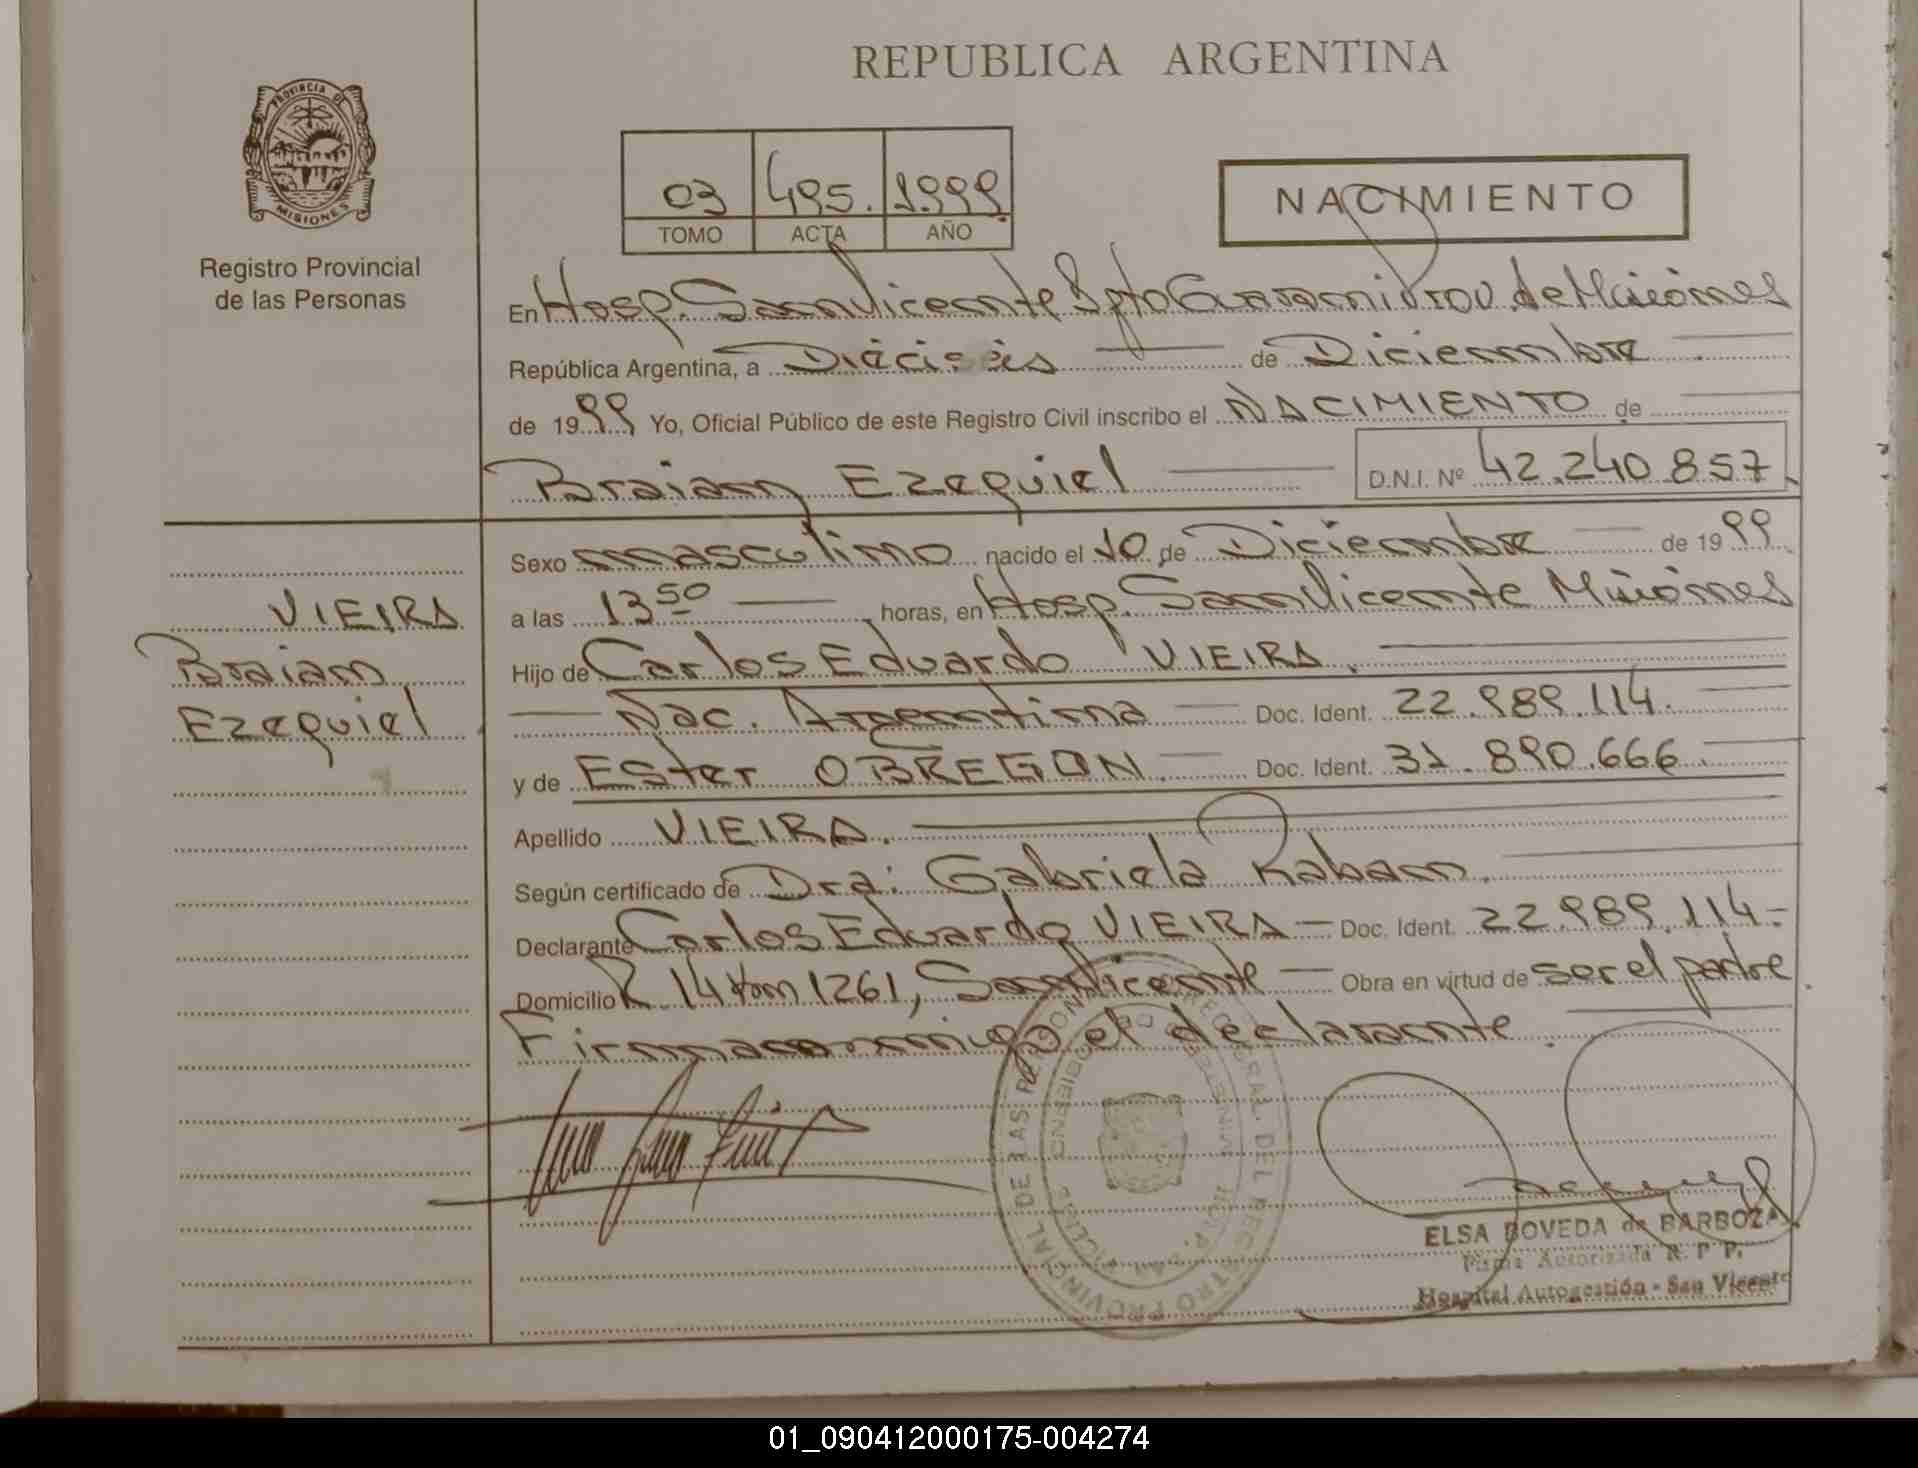 REPUBLICA ARGENTINA
PROVINCIA DE
MISIONES
Registro Provincial
de las Personas
03 495. 1999
TOMO ACTA AÑO
NACIMIENTO
En Hosp. San Vicente Dpto Guarani Prov. de Misiones
República Argentina, a Dieciseis de Diciembre
de 1999 Yo, Oficial Público de este Registro Civil inscribo el NACIMIENTO de
Braian Ezequiel D.N.I. Nº 42.240.857
Sexo masculino nacido el 10 de Diciembre de 1999
a las 13 50 horas, en Hosp. San Vicente Misiones
Hijo de Carlos Eduardo VIEIRA.
Nac. Argentina Doc. Ident. 22.989.114.
y de Ester OBREGON. Doc. Ident. 31.890.666
Apellido VIEIRA.
Según certificado de Dra: Gabriela Raban.
Declarante Carlos Eduardo VIEIRA Doc. Ident. 22.989.114.-
Domicilio R 14 km 1261, San Vicente Obra en virtud de ser el padre
Firma conmigo el declarante.
VIEIRA
Braian
Ezequiel
REGISTRO PROVINCIAL DE LAS PERSONAS
ELSA BOVEDA de BARBOZA
Firma Autorizada R. P. P.
Hospital Autogestión - San Vicente
01_090412000175-004274